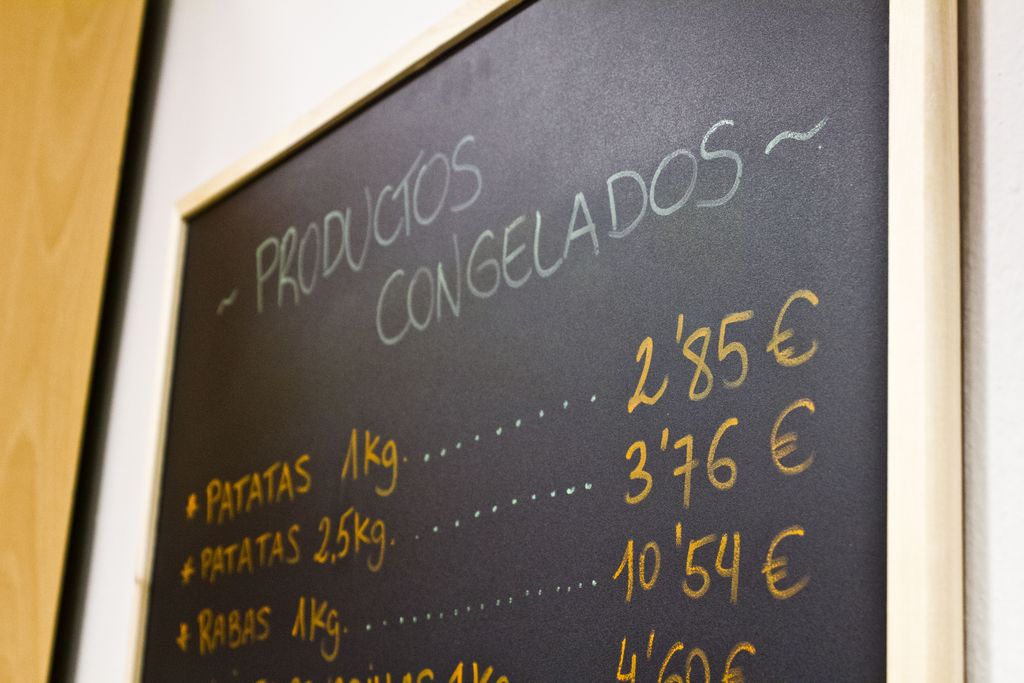 ~ PRODUCTOS
CONGELADOS ~
* PATATAS 1Kg. .......... 2'85 €
* PATATAS 2,5Kg. .......... 3'76 €
* RABAS 1Kg. .............. 10'54 €
1Kg. 4'60 €